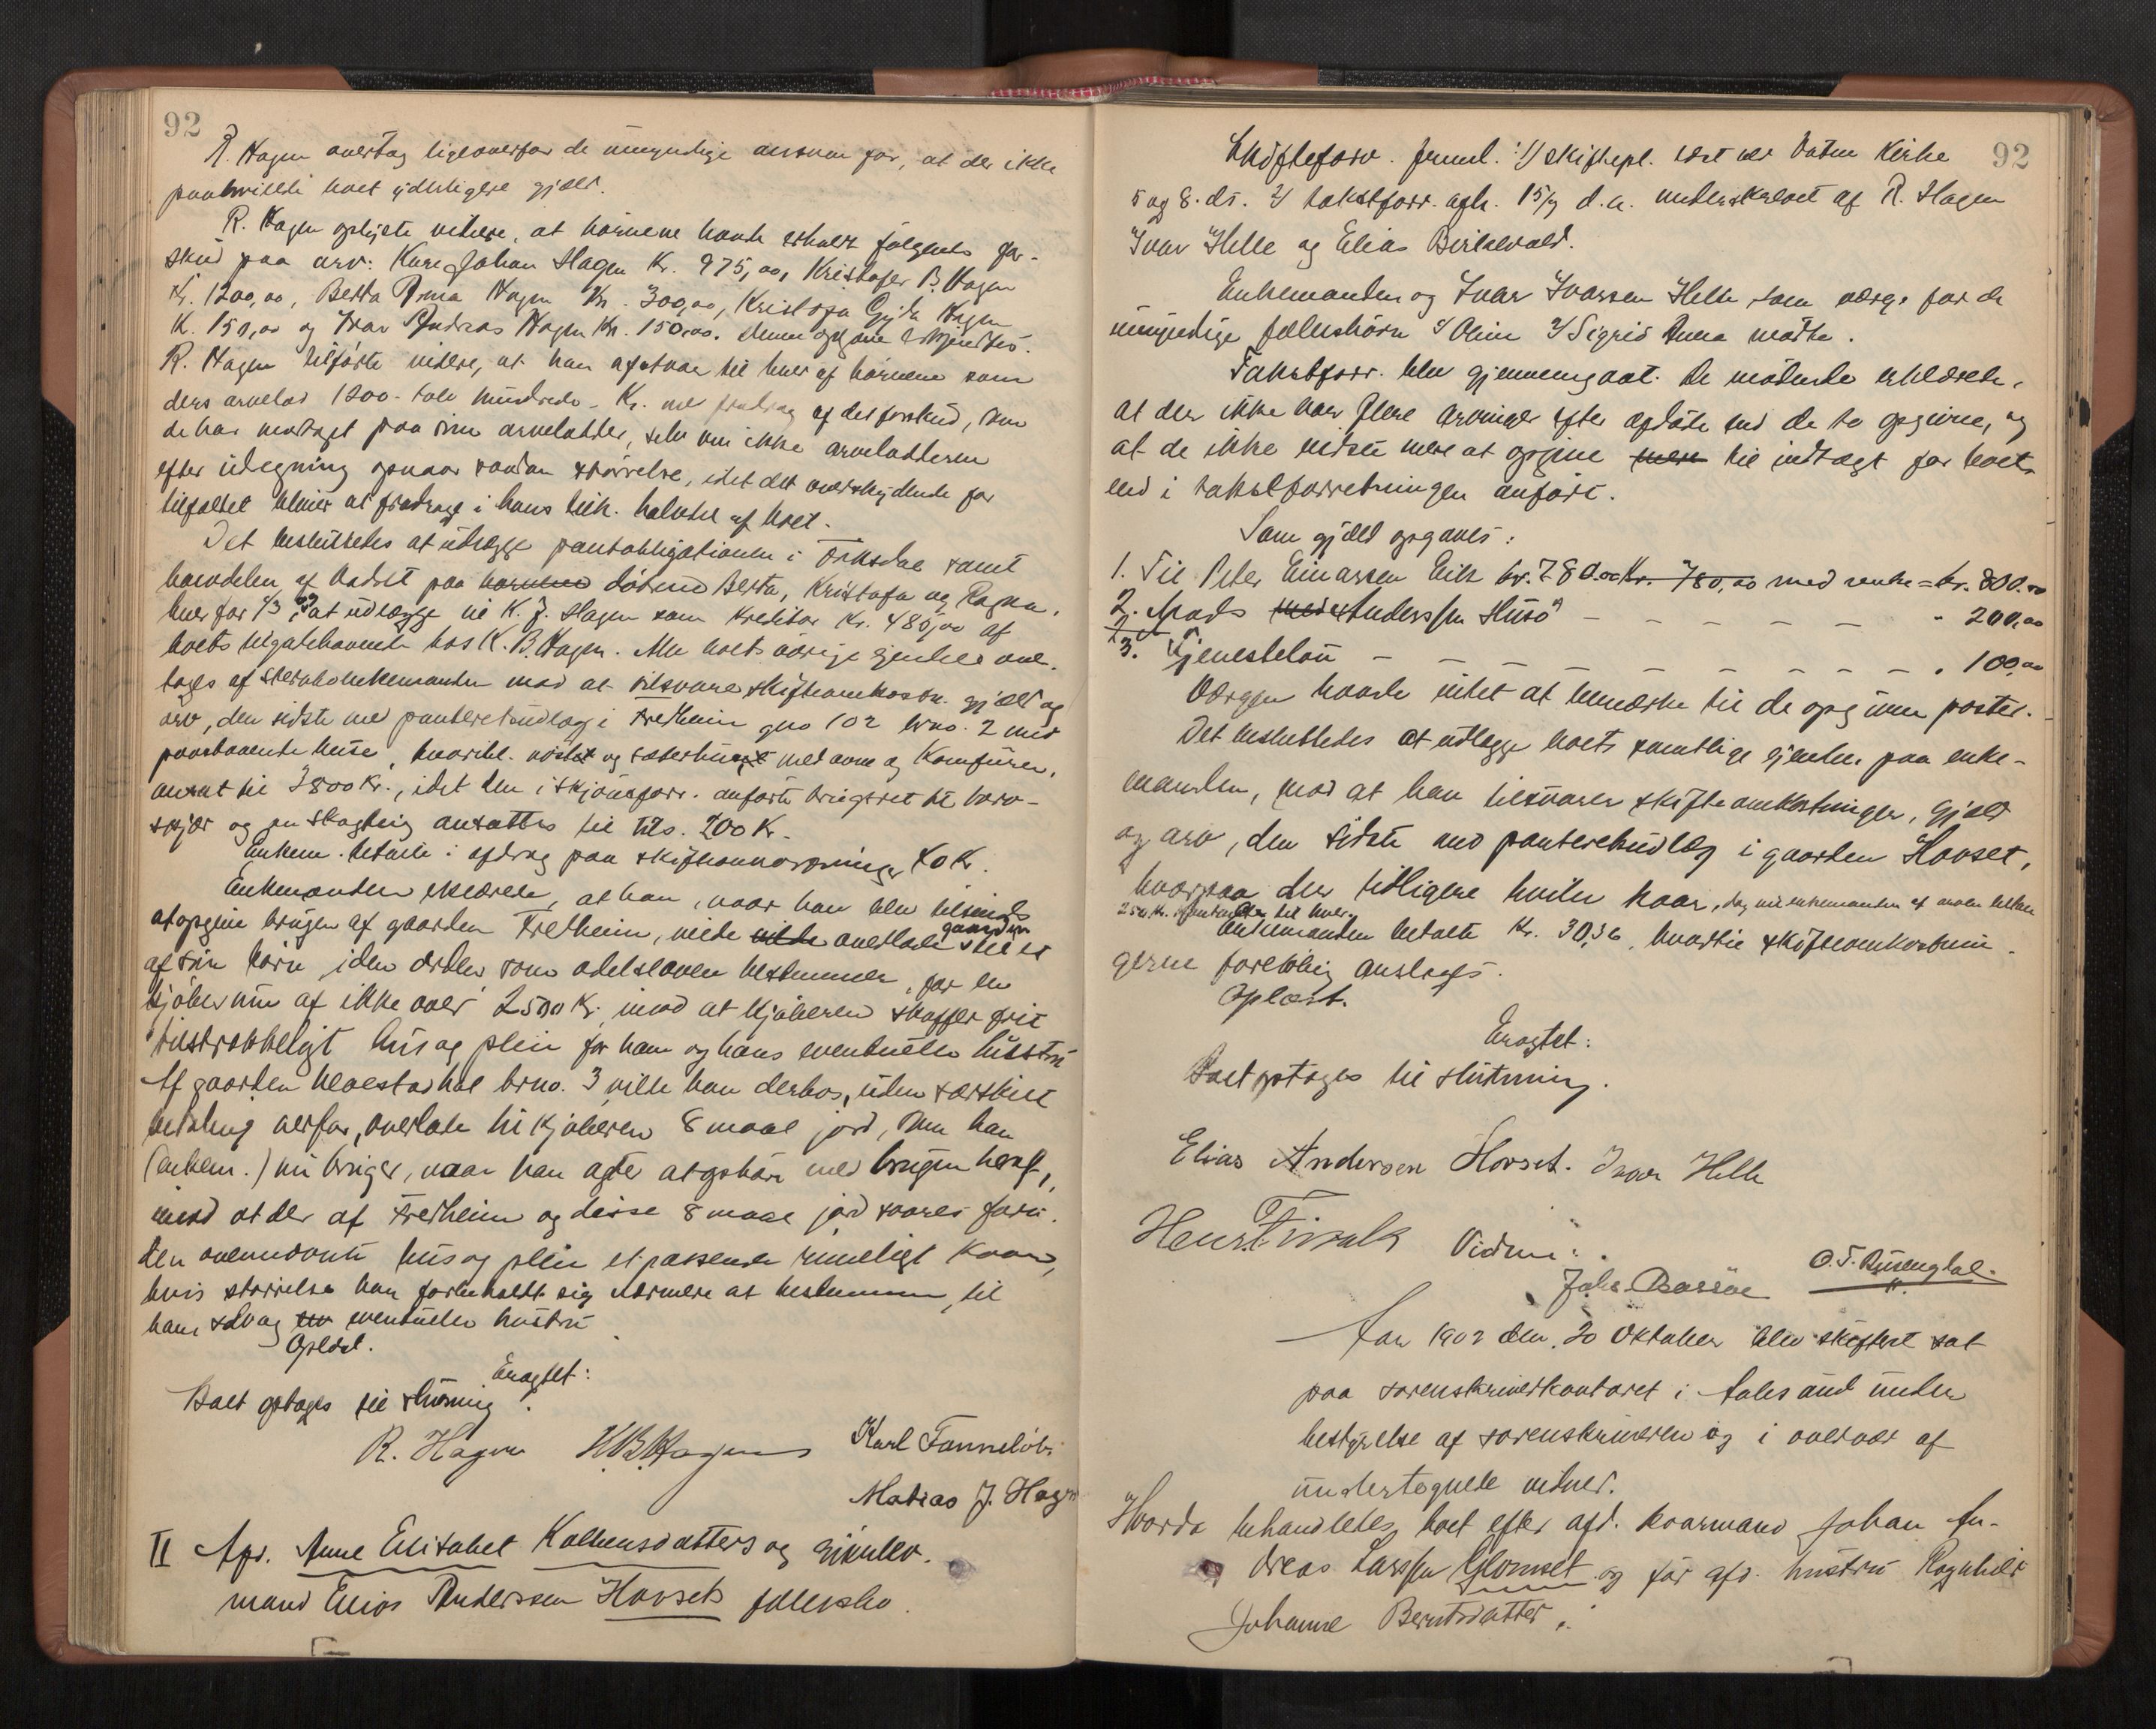 92
R. Hagen overtog ligeoverfor de umyndige ansvar for, at der ikke
paahvilede boet yderligere gjæld.
R. Hagen oplyste videre, at børnene havde erholdt følgende for-
skud paa arv: Karl Johan Hagen Kr. 975,00, Kristofer B. Hagen
Kr. 1200,00, Berta Anna Hagen Kr. 300,00, Kristofa Gyda Hagen
K. 150,00 og Ivar Andreas Hagen Kr. 150,00. Denne opgave erkjendtes.
R. Hagen tilførte videre, at han afstaar til hver af børnene som
ders arvelod 1200 - tolv hundrede - Kr. med fradrag af det forskud, som
de har modtaget paa sine arvelodder, selv om ikke arvelodderne
efter udregning opnaar saadan størrelse, idet det overskydende for
tilfældet bliver at fradrage i hans halvdel af boet.
Det besluttedes at udlægge pantobligationen i Ørksdal samt
halvdelen af Badset paa børnene døtrene Berta, Kristofa og Ragna,
hver for 1/3 og at udlægge til K. J. Hagen som kreditor Kr. 485,00 af
boets tilgodehavende hos K. B. Hagen. Alle boets øvrige eiendele over-
tages af Sterbboenkemanden mod at tilsvare skifteomkostn. gjæld og
arv, den sidste med panteretudlæg i Fretheim gno 102 brno. 2 med
paastaaende huse, hvoribl. nøstet og sæterhuset med ovne og Komfurer,
ansat til 3800 Kr., idet den i skjønsforr. anførte brugsret til
skjær og en Skogteig ansattes til tils. 200 Kr.
Enkem. betalte i afdrag paa skifteomkostninger 40 Kr.
Enkemanden erklærede, at han, naar han blev tilsinds
at opgive brugen af gaarden Fretheim, vilde vilde overlade gaarden til et
af sine børn i den orden som odelsloven bestemmer, for en
kjøbesum af ikke over 2500 Kr. imod at kjøberen skaffer frit
tilstrækkeligt hus og pleie for ham og hans eventuelle hustru
Af gaarden brno. 3 vilde han derhos, uden særskilt
betaling derfor, overlade til kjøberen 8 maal jord, som han
(enkem.) nu bruger, naar han agter at ophøre med brugen heraf,
imod at der af Fretheim og disse 8 maal jord svares foru-
den ovennævnte hus og pleie et passende rimeligt Kaar,
hvis størrelse han forbeholdt sig nærmere at bestemme, til
ham selv og en eventuelle hustru
Oplæst.
Eragtet:
Boet optages til slutning.
R. Hagen K. B. Hagen Karl
Matias J. Hagen
II Afd. Anne Elisabet Kolbensdatters og gjenlev.
mand Elias Anderssen Hovsets fællesbo.
92
Skifteforv. freml. 1/ skiftepl. læst ved Vatne Kirke
5 og 8. ds. 2/ takstforr. afh. 15/9 d.a. underskrevet af R. Hagen
Ivar Helle og Elias Birkevold.
Enkemanden og Ivar Ivarssen Helle som værge for de
umyndige fællesbørn 1/ Oline 2/ Sigrid Anna mødte.
Takstforr. blev gjennemgaaet. De mødende erklærede,
at der ikke var flere arvinger efter afdøde end de to opgivne, og
at de ikke vidste mere at opgive mere til indtægt for boet
end i takstforretningen anført.
Som gjæld opgaves:
1. Til Peter Einarssen Eik kr. 780.00 Kr. 780,00 med renter = kr. 800.00
2. Mads Anderssen Husø - - - - - - 200,00
3. Tjenesteløn - - - - - - - - - 100,00
Værgen havde intet at bemærke til de opgivne poster.
Det besluttedes at udlægge boets samtlige eiendele paa enke-
manden, mod at han tilsvarer skifteomkostninger, gjæld
og arv, den sidste mod panteretudlæg i gaarden Hovset,
hvorpaa der tidligere hviler kaar,
250 Kr. til hver.
Enkemanden betalte Kr. 30,36, hvortil skifteomkostnin-
gerne foreløbig ansloges.
Oplæst.
Eragtet:
Boet optages til slutning.
Elias Andersen Hovset. Ivar Helle
Vidner:
O. T. Rusengdal.
Johs Bassøe
Aar 1902 den 20 Oktober blev skifteret sat
paa sorenskriverkontoret i Aalesund under
bestyrelse af sorenskriveren og i overvær af
undertegnede vidner.
Hvorda behandledes boet efter afd. kaarmand Johan An-
dreas Larssen Glomset og før afd. hustru Ragnhild
Johanne Berntsdatter.